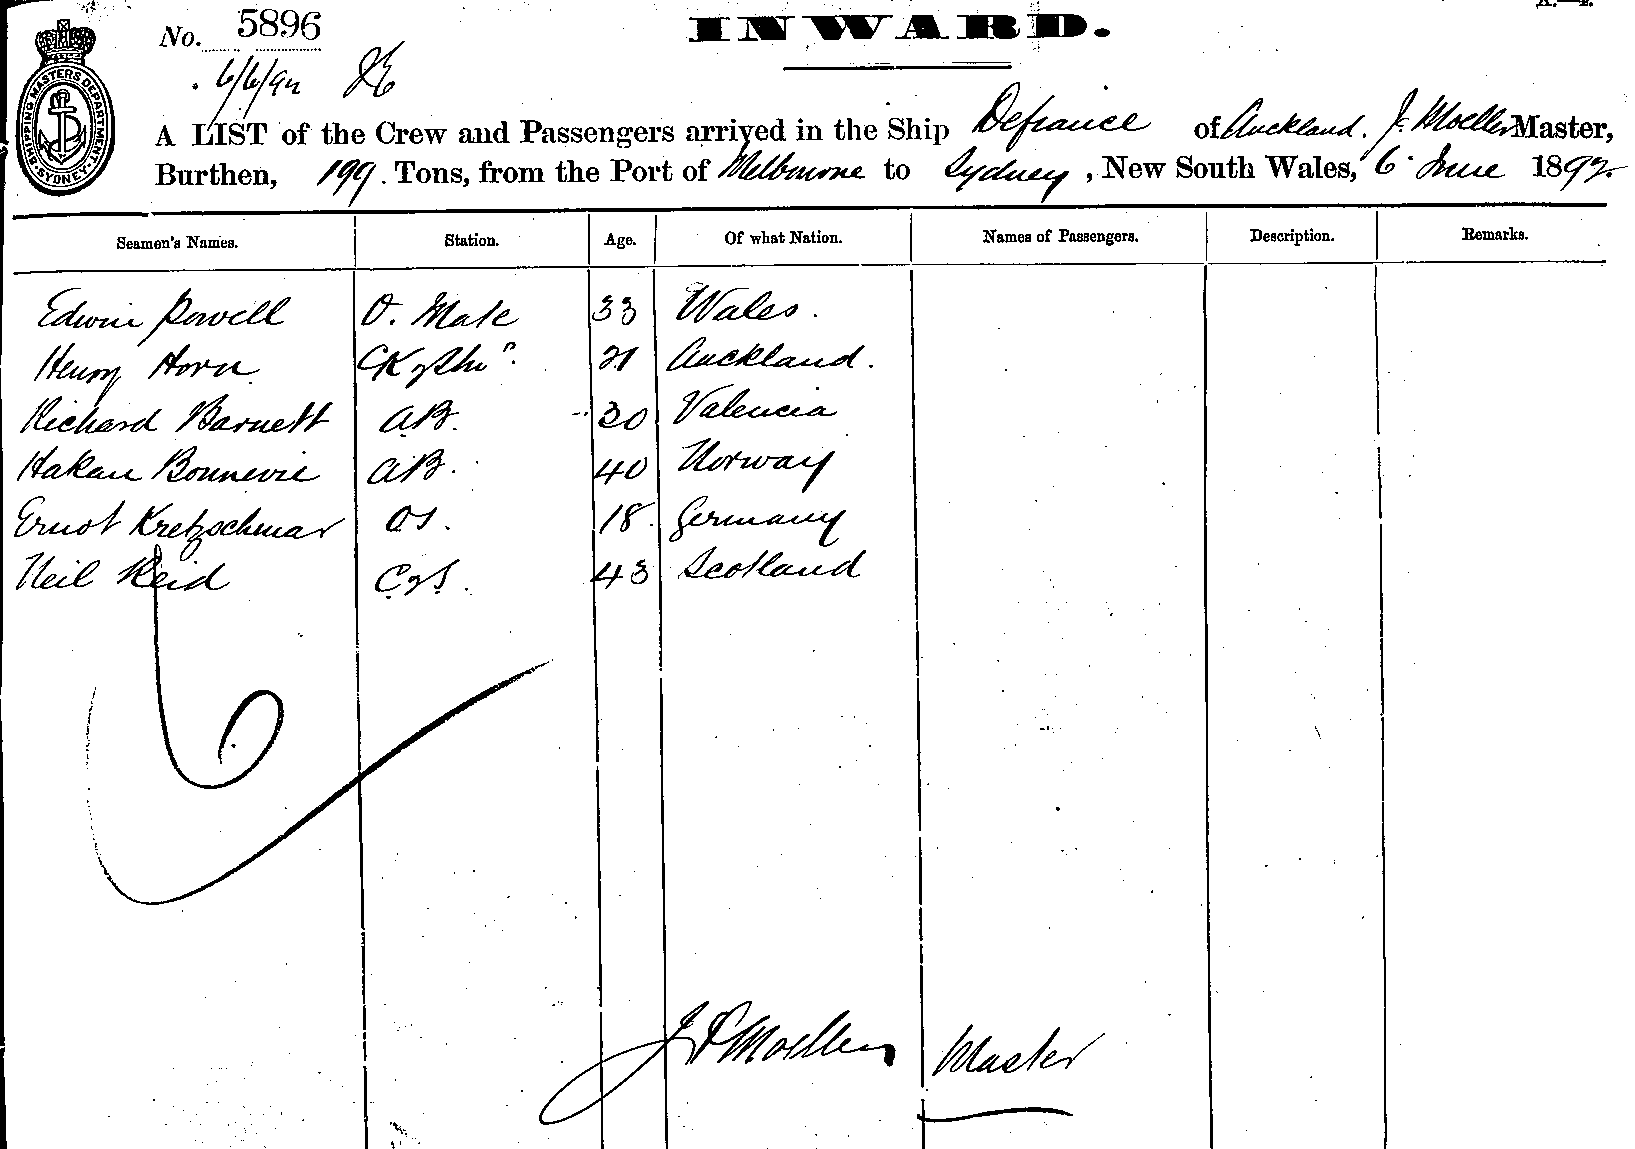 A.—4.
No. 5896
INWARD.
6/6/92
SHIPPING MASTERS DEPARTMENT SYDNEY
A LIST of the Crew and Passengers arrived in the Ship Defiance of Auckland. J. Moeller Master,
Burthen, 199. Tons, from the Port of Melbourne to Sydney, New South Wales, 6 June 1892.
Seamen's Names. Station. Age. Of what Nation. Names of Passengers. Description. Remarks.
Edwin Powell O. Mate 33 Wales.
Henry Horn 21 Auckland.
Richard Barnett AB. 30 Valencia
Hakan Bonnevie AB. 40 Norway
Ernst Kretzschmar OS. 18. Germany
Neil Reid C&S. 43 Scotland
J Moeller Master